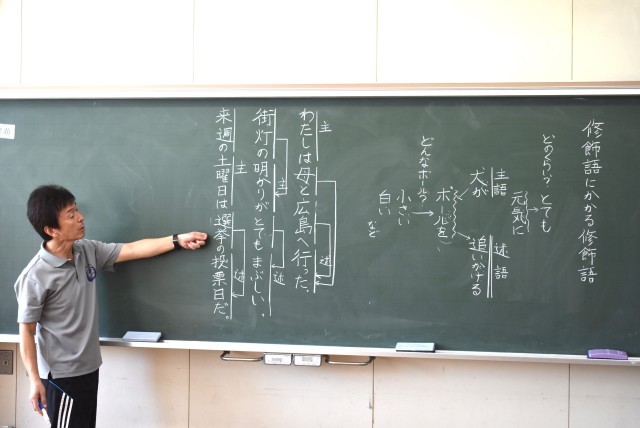 修飾語にかかる修飾語
どのくらい?
とても
元気に
主語
述語
犬が
追いかける
ボールを
どんなボール?
小さい
白い
など
わたしは母と広島へ行った。
主
述
街灯の明かりがとてもまぶしい。
主
述
来週の土曜日は選挙の投票日だ。
主
述